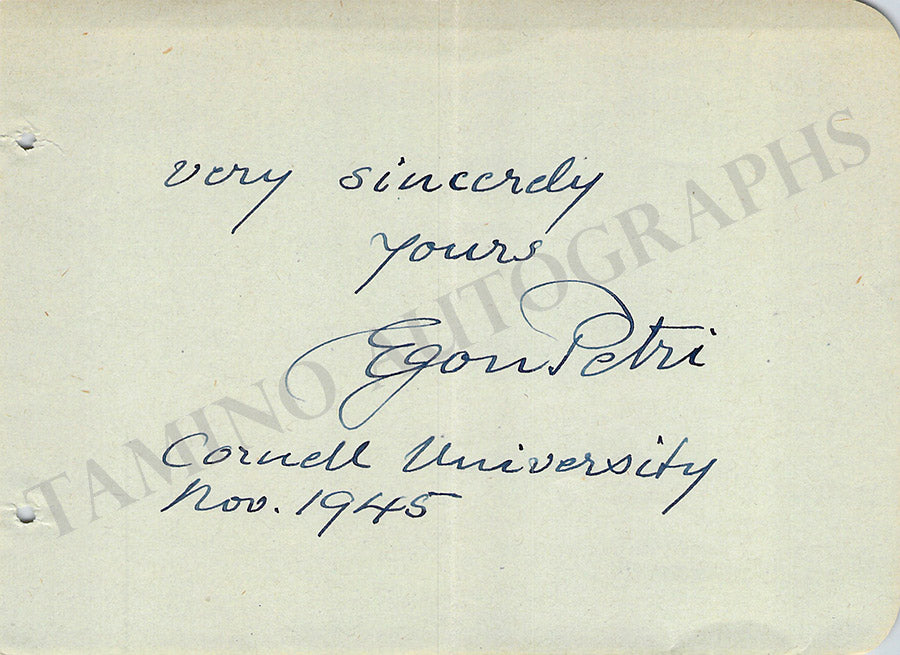 very sincerely
yours
Egon Petri
Cornell University
Nov. 1945
TAMINO AUTOGRAPHS